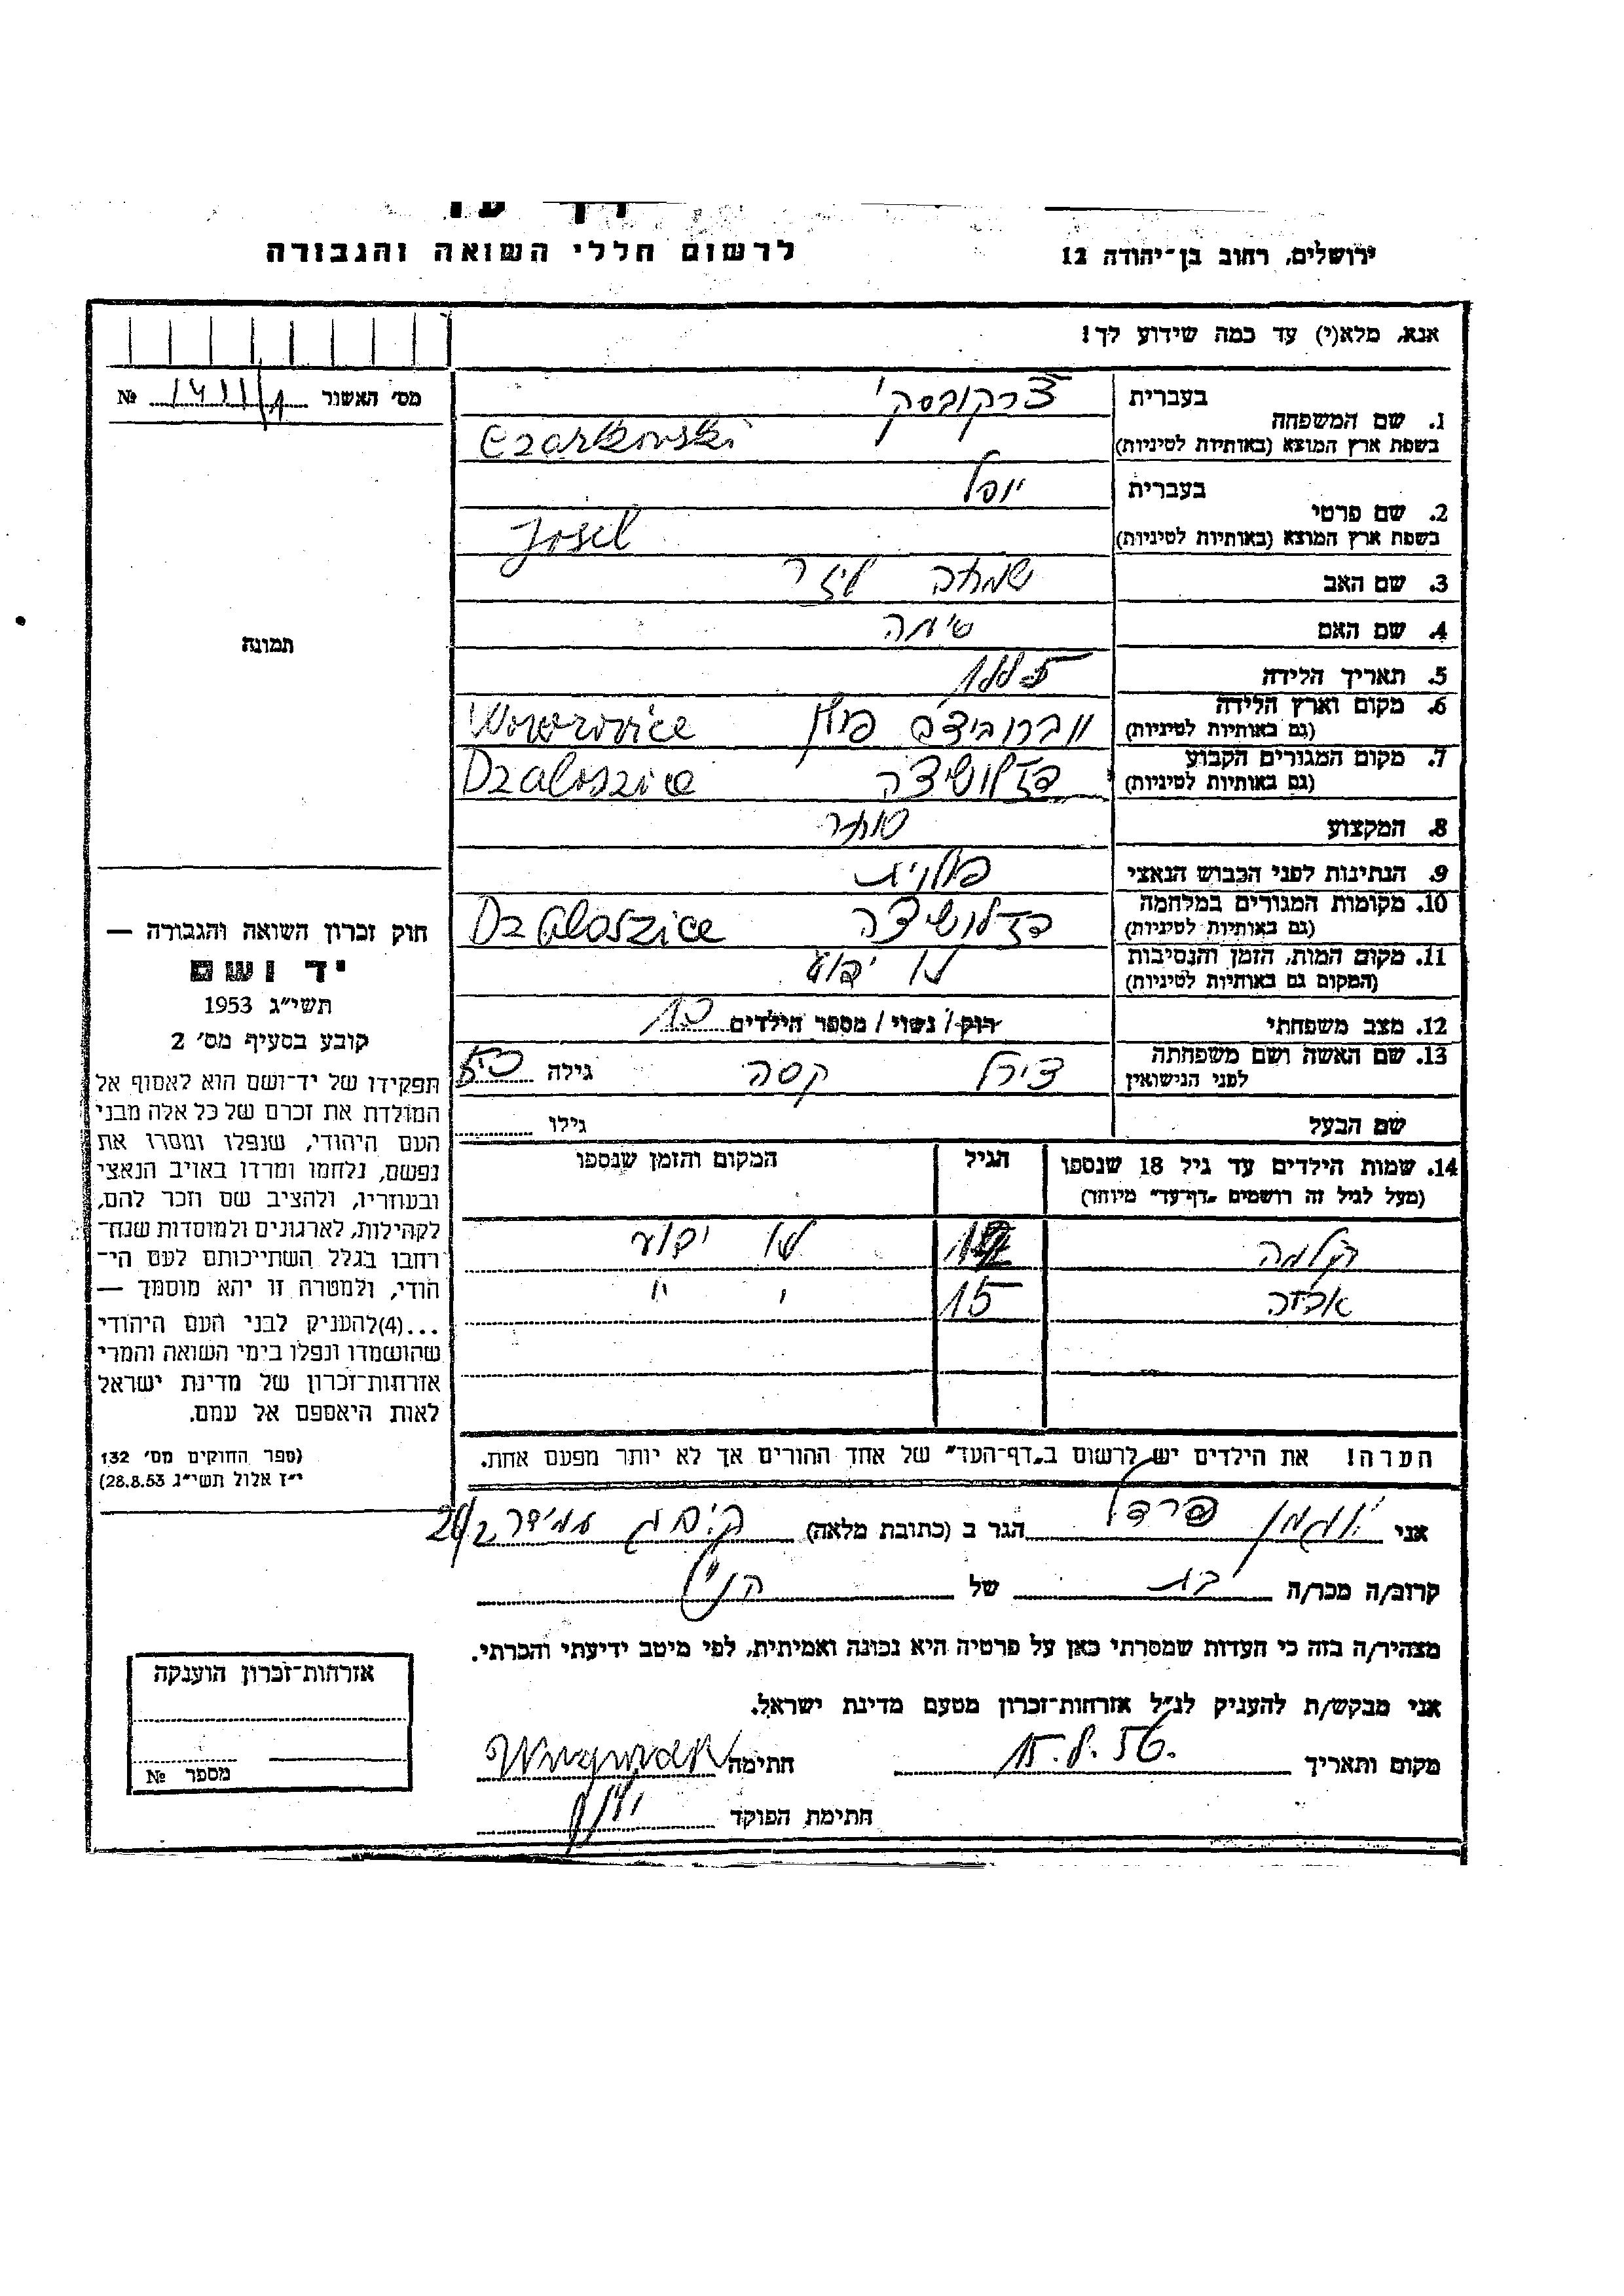 ירושלים, רחוב בן-יהודה 12
לרשום חללי השואה והגבורה
אנא, מלא(י) עד כמה שידוע לך!
מס׳ האשור № 
1. שם המשפחה
בעברית
צרקובסקי
בשפת ארץ המוצא (באותיות לטיניות)
Czarkowski
2. שם פרטי
בעברית
יוסל
בשפת ארץ המוצא (באותיות לטיניות)
Josel
3. שם האב שמחה ליזר
4. שם האם סימה
5. תאריך הלידה
6. מקום וארץ הלידה
(גם באותיות לטיניות)
פולין
7. מקום המגורים הקבוע
(גם באותיות לטיניות)
Dzaloszice
8. המקצוע סוחר
9. הנתינות לפני הכבוש הנאצי פולנית
10. מקומות המגורים במלחמה
(גם באותיות לטיניות)
Dzaloszice
11. מקום המות, הזמן והנסיבות
(המקום גם באותיות לטיניות)
לא ידוע
12. מצב משפחתי רוק / נשוי / מספר הילדים 10
13. שם האשה ושם משפחתה
לפני הנישואין
צירל קסה גילה
שם הבעל גילו
14. שמות הילדים עד גיל 18 שנספו
(מעל לגיל זה רושמים „דף-עד״ מיוחד)
הגיל
המקום והזמן שנספו
לא ידוע
15 ״ ״
הערה! את הילדים יש לרשום ב„דף-העד״ של אחד ההורים אך לא יותר מפעם אחת.
אני הגר ב (כתובת מלאה)
קרוב/ה מכר/ה בת של הנ״ל
מצהיר/ה בזה כי העדות שמסרתי כאן על פרטיה היא נכונה ואמיתית, לפי מיטב ידיעתי והכרתי.
אני מבקש/ת להעניק לנ״ל אזרחות-זכרון מטעם מדינת ישראל.
מקום ותאריך חתימה
חתימת הפוקד
תמונה
חוק זכרון השואה והגבורה —
יד ושם
תשי״ג 1953
קובע בסעיף מס׳ 2
תפקידו של יד-ושם הוא לאסוף אל
המולדת את זכרם של כל אלה מבני
העם היהודי, שנפלו ומסרו את
נפשם, נלחמו ומרדו באויב הנאצי
ובעוזריו, ולהציב שם וזכר להם,
לקהילות, לארגונים ולמוסדות שנח-
רחבו בגלל השתייכותם לעם הי-
הודי, ולמטרה זו יהא מוסמך —
...(4)להעניק לבני העם היהודי
שהושמדו ונפלו בימי השואה והמרי
אזרחות-זכרון של מדינת ישראל
לאות היאספם אל עמם.
(ספר החוקים מס׳ 132
י״ז אלול תשי״ג 28.8.53)
אזרחות-זכרון הוענקה
מספר №